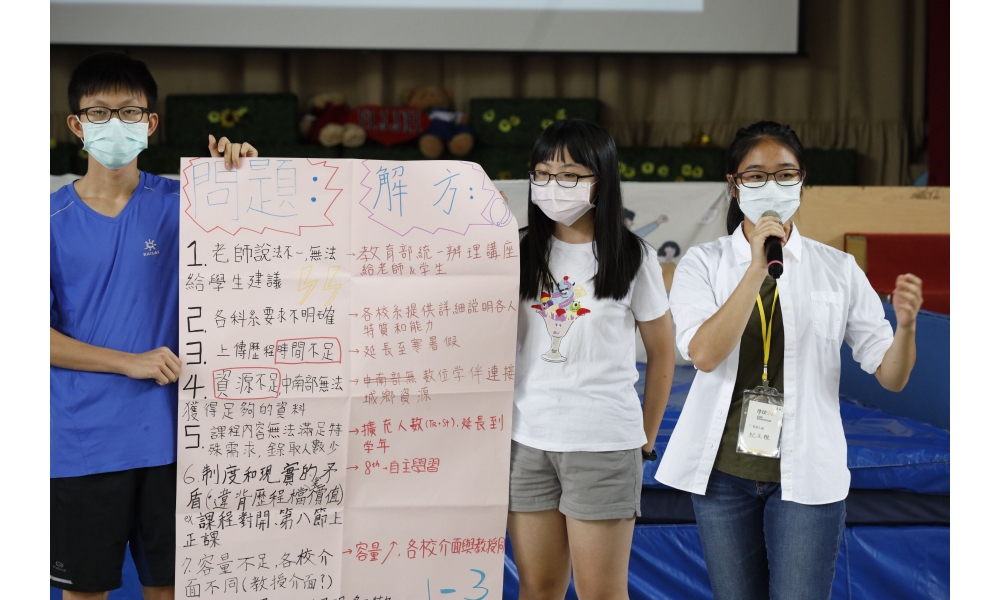 問題：
解方：
1. 老師說法不一，無法
給學生建議
→教育部統一辦理講座
給老師&學生
2. 各科系要求不明確
→各校系提供詳細說明各人
特質和能力
3. 上傳歷程時間不足
→延長至寒暑假
4. 資源不足中南部無法
獲得足夠的資料
→中南部無數位學伴連接
城鄉資源
5. 課程內容無法滿足特
殊需求，錄取人數少
→擴充人數(Ta+St).延長到
學年
6.制度和現實的矛
盾(違背歷程檔案價值)
ex課程對開.第八節上
正課
→8th→自主學習
7.容量不足,各校介
面不同(教授介面?)
→容量↗.各校介面與教授同
1-3